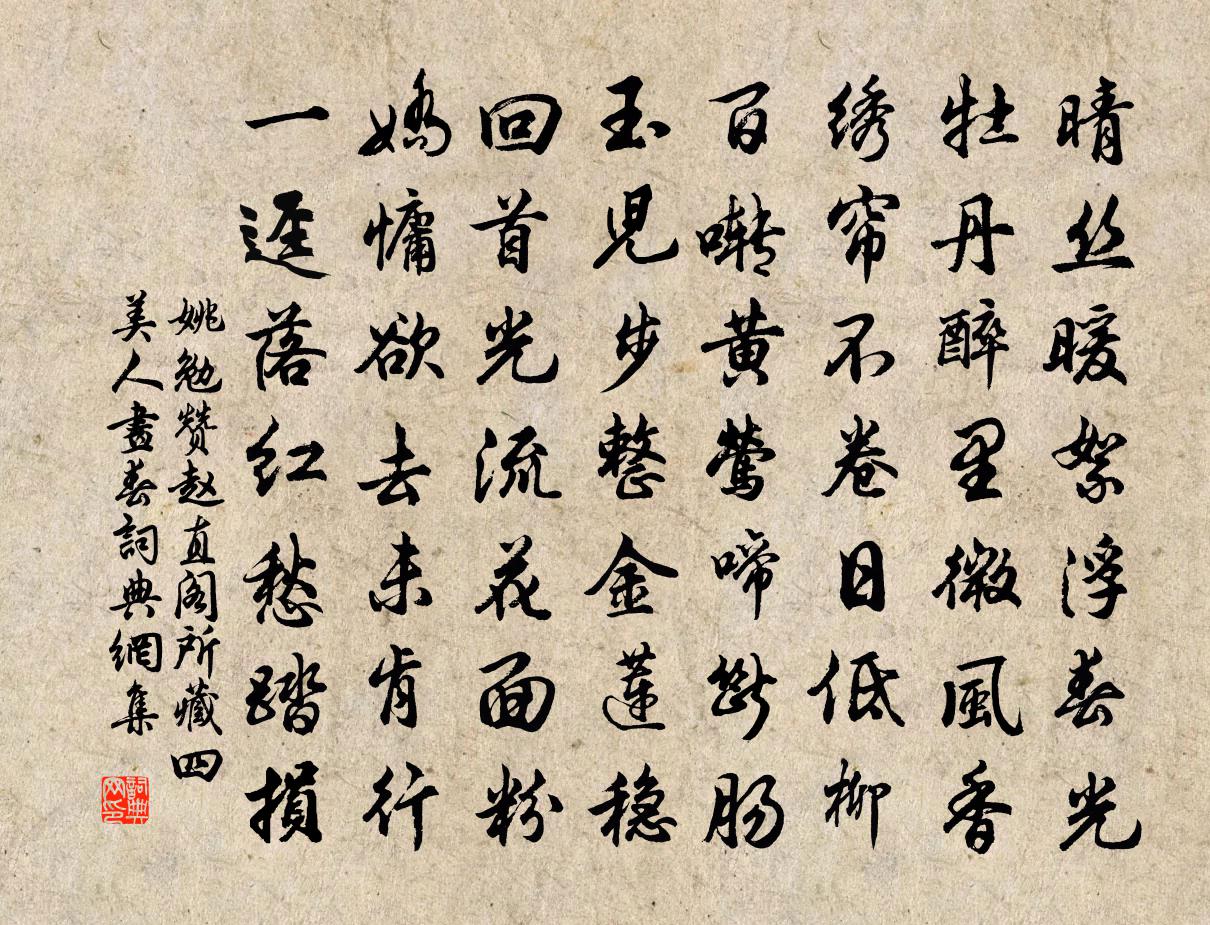 晴丝暖絮浮春光
牡丹醉里微風香
绣帘不卷日低柳
百啭黄莺啼断肠
玉児步整金莲稳
回首光流花面粉
娇慵欲去未肯行
一迳落红愁踏损
姚勉赞赵直阁所藏四
美人畫春詞典網集
詞典
网印